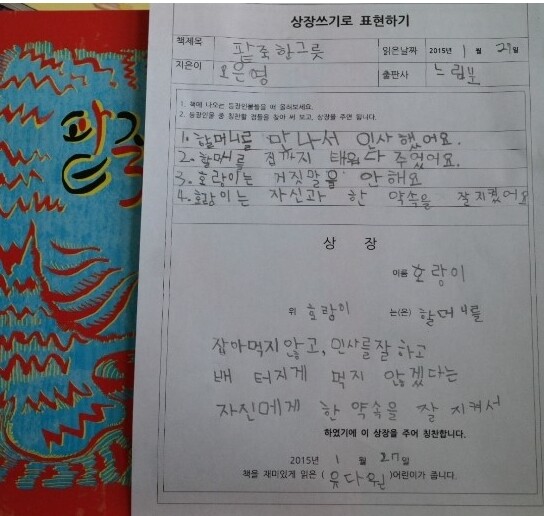 상장쓰기로 표현하기
책제목 팥죽한그릇 읽은날짜 2015년 1월 27일
지은이 오은영 출판사 느림보
1. 책에 나오는 등장인물들을 떠 올려보세요.
2. 등장인물 중 칭찬할 점들을 찾아 써 보고, 상장을 주면 됩니다.
1. 할머니를 만나서 인사했어요.
2. 할머니를 집까지 태워다 주었어요.
3. 호랑이는 거짓말을 안해요
4. 호랑이는 자신과 한 약속을 잘지켰어요
상 장
이름 호랑이
위 호랑이 는(은) 할머니를
잡아먹지않고, 인사를잘하고
배 터지게 먹지 않겠다는
자신에게 한 약속을 잘 지켜서
하였기에 이 상장을 주어 칭찬합니다.
2015년 1 월 27일
책을 재미있게 읽은 ( 유다원 )어린이가 줍니다.
팥죽